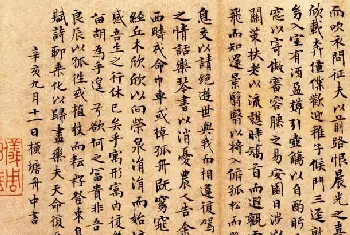 而吹衣問征夫以前路恨晨光之熹
欣載奔僮僕歡迎稚子候門三逕就
幼入室有酒盈樽引壺觴以自酌眄
窓以寄傲審容膝之易安園日涉以
關策扶老以流憩時矯首而遐觀雲
飛而知還景翳翳以將入撫孤松而盤
息交以絕遊世與我而相遺復駕
之情話樂琴書以消憂農人告余
西疇或命巾車或棹孤舟既窈窕
經丘木欣欣以向榮泉涓涓而始
感吾生之行休已矣乎寓形寓內復
留胡為乎遑遑兮欲何之富貴非吾
良辰以孤往或植杖而耘耔登東皋
賦詩聊乘化以歸盡樂夫天命復
辛亥九月十一日橫塘舟中書